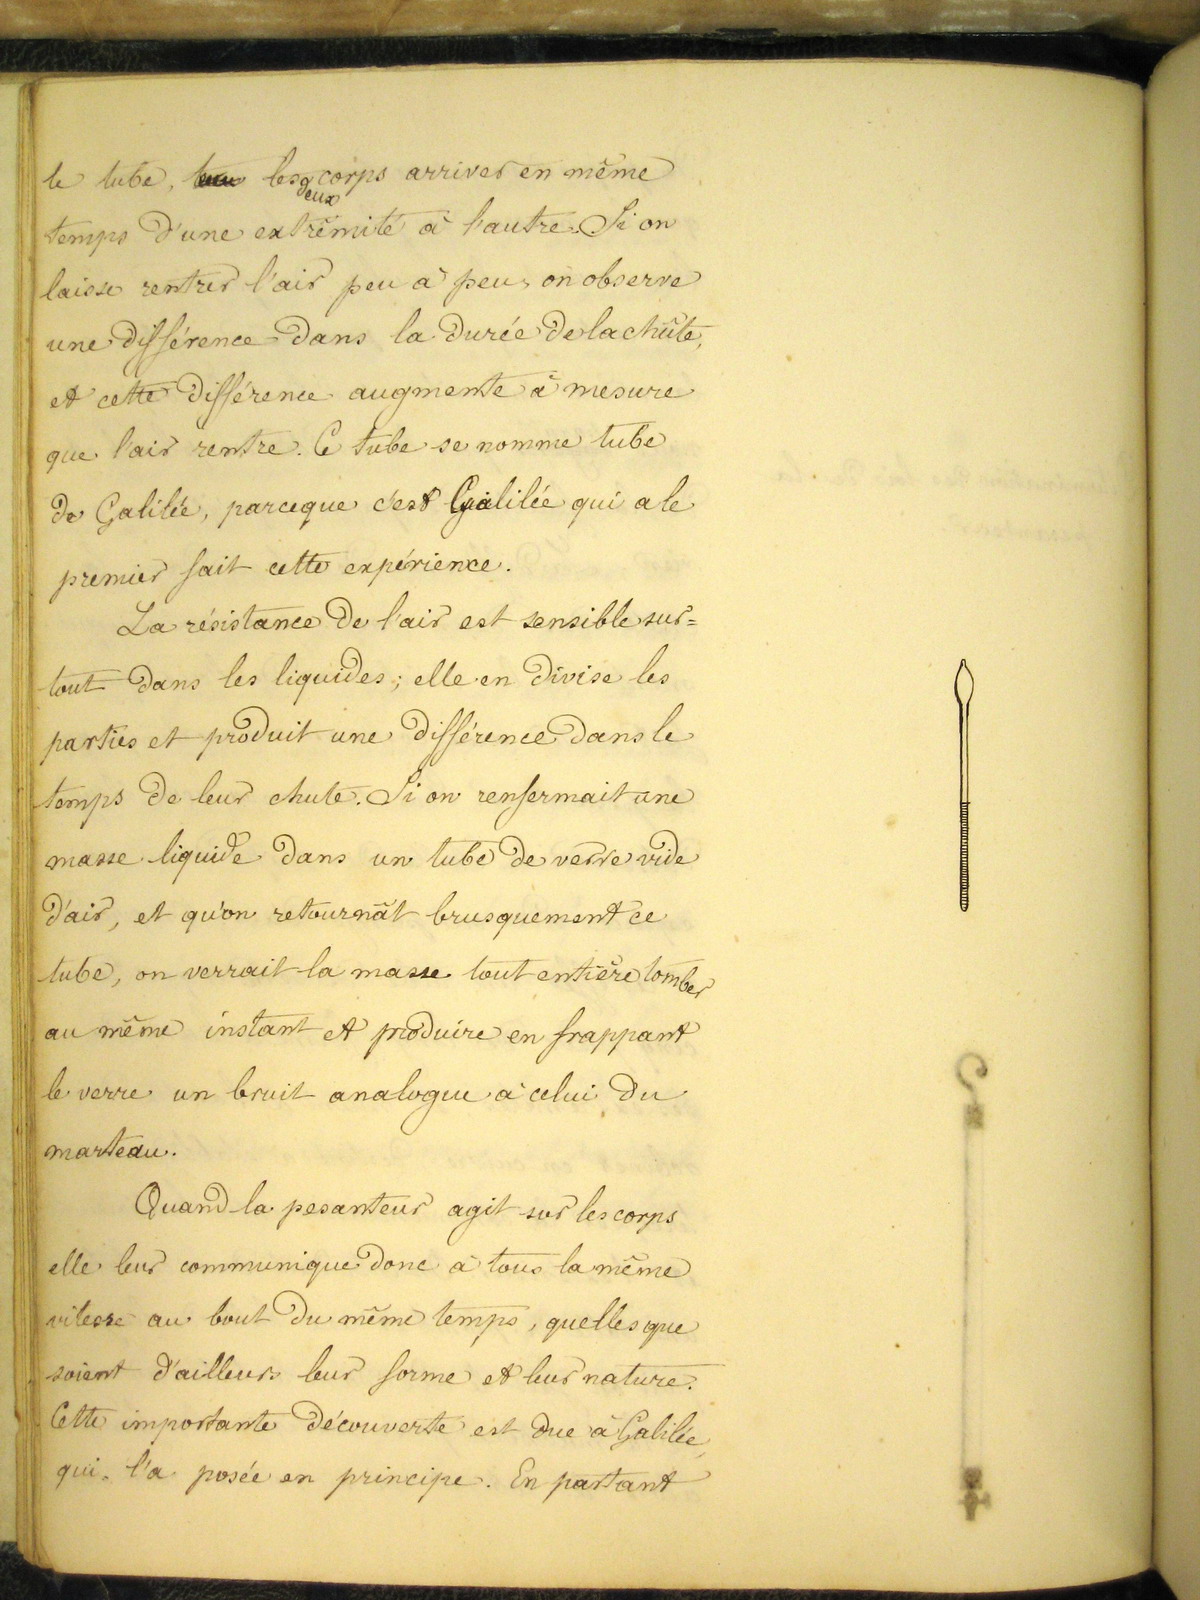 le tube, les deux corps arriver en même
temps d'une extrêmité à l'autre. Si on
laisse rentrer l'air peu à peu, on observe
une différence dans la durée de la chûte,
et cette différence augmente à mesure
que l'air rentre. Ce tube se nomme tube
de Galilée, parceque c'est Galilée qui a le
premier fait cette expérience.
La résistance de l'air est sensible sur=
tout dans les liquides; elle en divise les
parties et produit une différence dans le
temps de leur chute. Si on renfermait une
masse liquide dans un tube de verre vide
d'air, et qu'on retournât brusquement ce
tube, on verrait la masse tout entière tomber
au même instant et produire en frappant
le verre un bruit analogue à celui du
marteau.
Quand la pesanteur agit sur les corps
elle leur communique donc à tous la même
vitesse au bout du même temps, quelles que
soient d'ailleurs leur forme et leur nature.
Cette importante découverte est due à Galilée,
qui l'a posée en principe. En partant